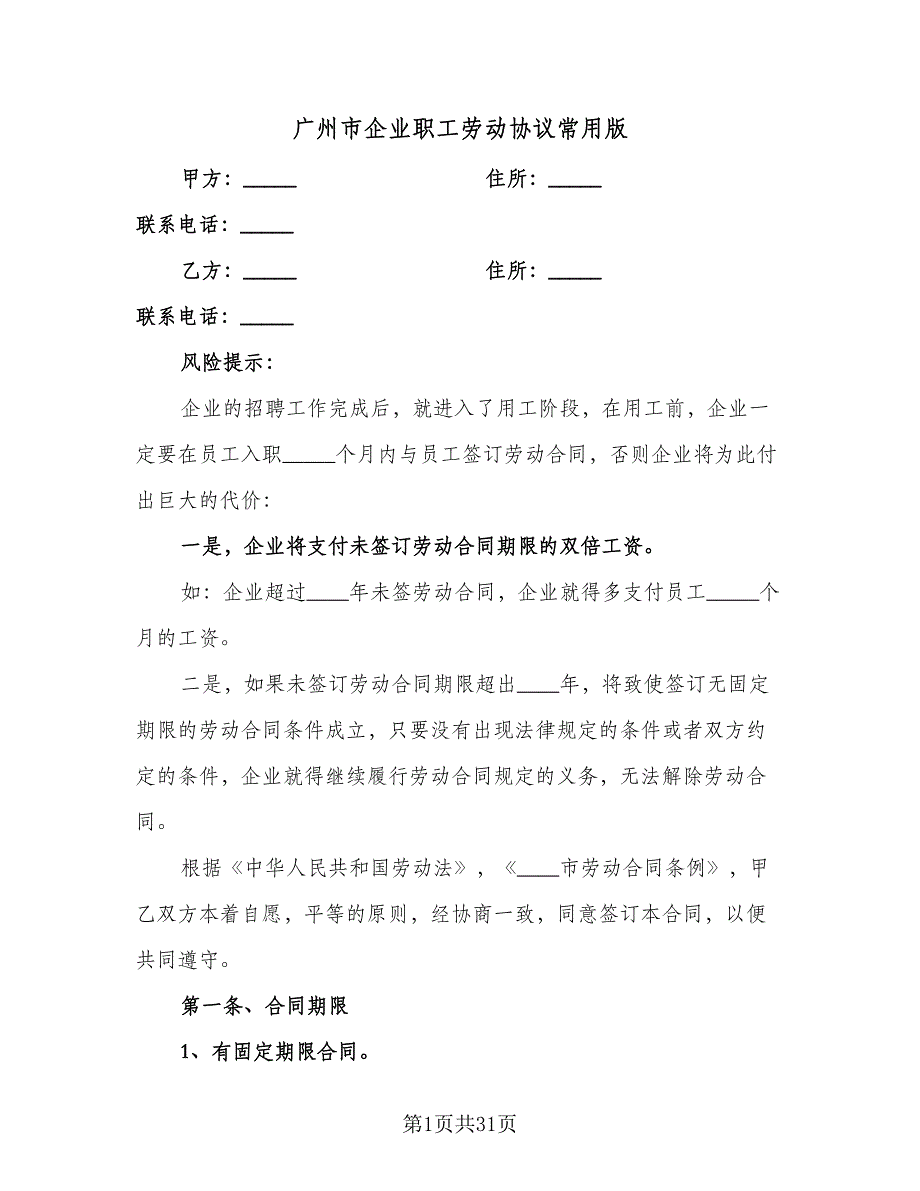 广州市企业职工劳动协议常用版
甲方：_____ 住所：_____
联系电话：_____
乙方：_____ 住所：_____
联系电话：_____
风险提示：
企业的招聘工作完成后，就进入了用工阶段，在用工前，企业一
定要在员工入职_____个月内与员工签订劳动合同，否则企业将为此付
出巨大的代价：
一是，企业将支付未签订劳动合同期限的双倍工资。
如：企业超过____年未签劳动合同，企业就得多支付员工_____个
月的工资。
二是，如果未签订劳动合同期限超出____年，将致使签订无固定
期限的劳动合同条件成立，只要没有出现法律规定的条件或者双方约
定的条件，企业就得继续履行劳动合同规定的义务，无法解除劳动合
同。
根据《中华人民共和国劳动法》，《____市劳动合同条例》，甲
乙双方本着自愿，平等的原则，经协商一致，同意签订本合同，以便
共同遵守。
第一条、合同期限
1、有固定期限合同。
第1页共31页